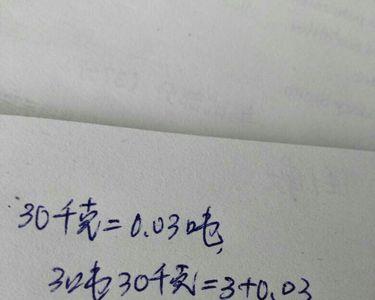 30千克=0.03吨,
3吨30千克=3+0.03